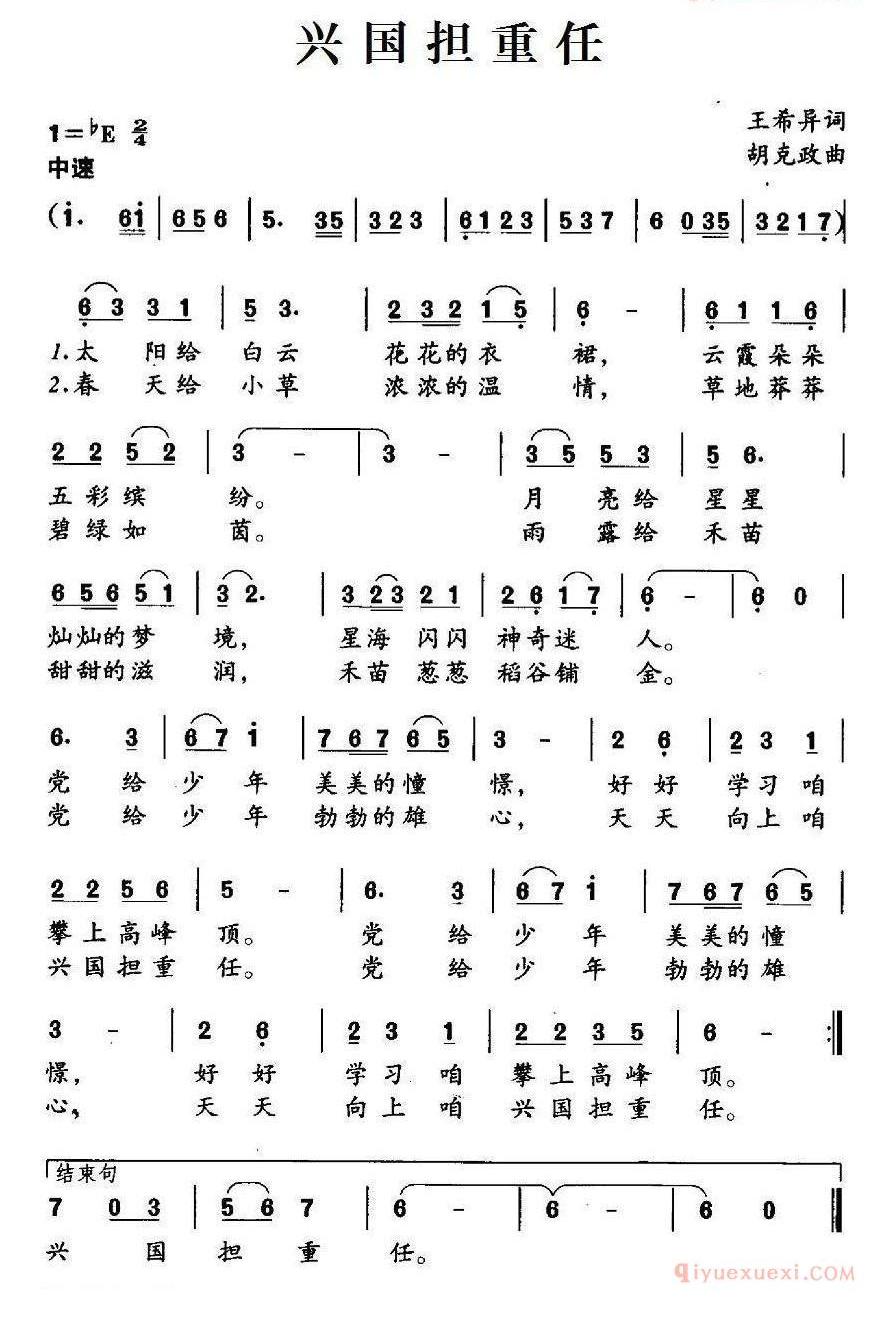 兴国担重任
1=♭E 2/4
王希异词
中速
胡克政曲
(i. 6i | 656 | 5. 35 | 323 | 6123 | 537 | 6 035 | 3217)
63 31 | 5 3. | 232 15 | 6 - | 61 16
1.太 阳给 白云 花花的衣 裙, 云霞朵朵
2.春 天给 小草 浓浓的温 情, 草地莽莽
22 52 | 3 - | 3 - | 35 53 | 5 6.
五彩缤 纷。 月 亮给 星星
碧绿如 茵。 雨 露给 禾苗
656 51 | 3 2. | 323 21 | 26 17 | 6 - | 6 0
灿灿的梦 境, 星海 闪闪 神奇迷 人。
甜甜的滋 润, 禾苗 葱葱 稻谷铺 金。
6. 3 | 67 i | 767 65 | 3 - | 2 6 | 2 3 1
党 给 少 年 美美的憧 憬, 好好 学习 咱
党 给 少 年 勃勃的雄 心, 天天 向上 咱
2256 | 5 - | 6. 3 | 67 i | 767 65
攀上高峰 顶。 党 给 少 年 美美的憧
兴国担重 任。 党 给 少 年 勃勃的雄
3 - | 2 6 | 2 3 1 | 22 35 | 6 - :||
憬, 好好 学习 咱 攀上高峰 顶。
心, 天天 向上 咱 兴国担重 任。
结束句
7 03 | 56 7 | 6 - | 6 - | 6 0 ||
兴 国 担 重 任。
qiyuexuexi.COM